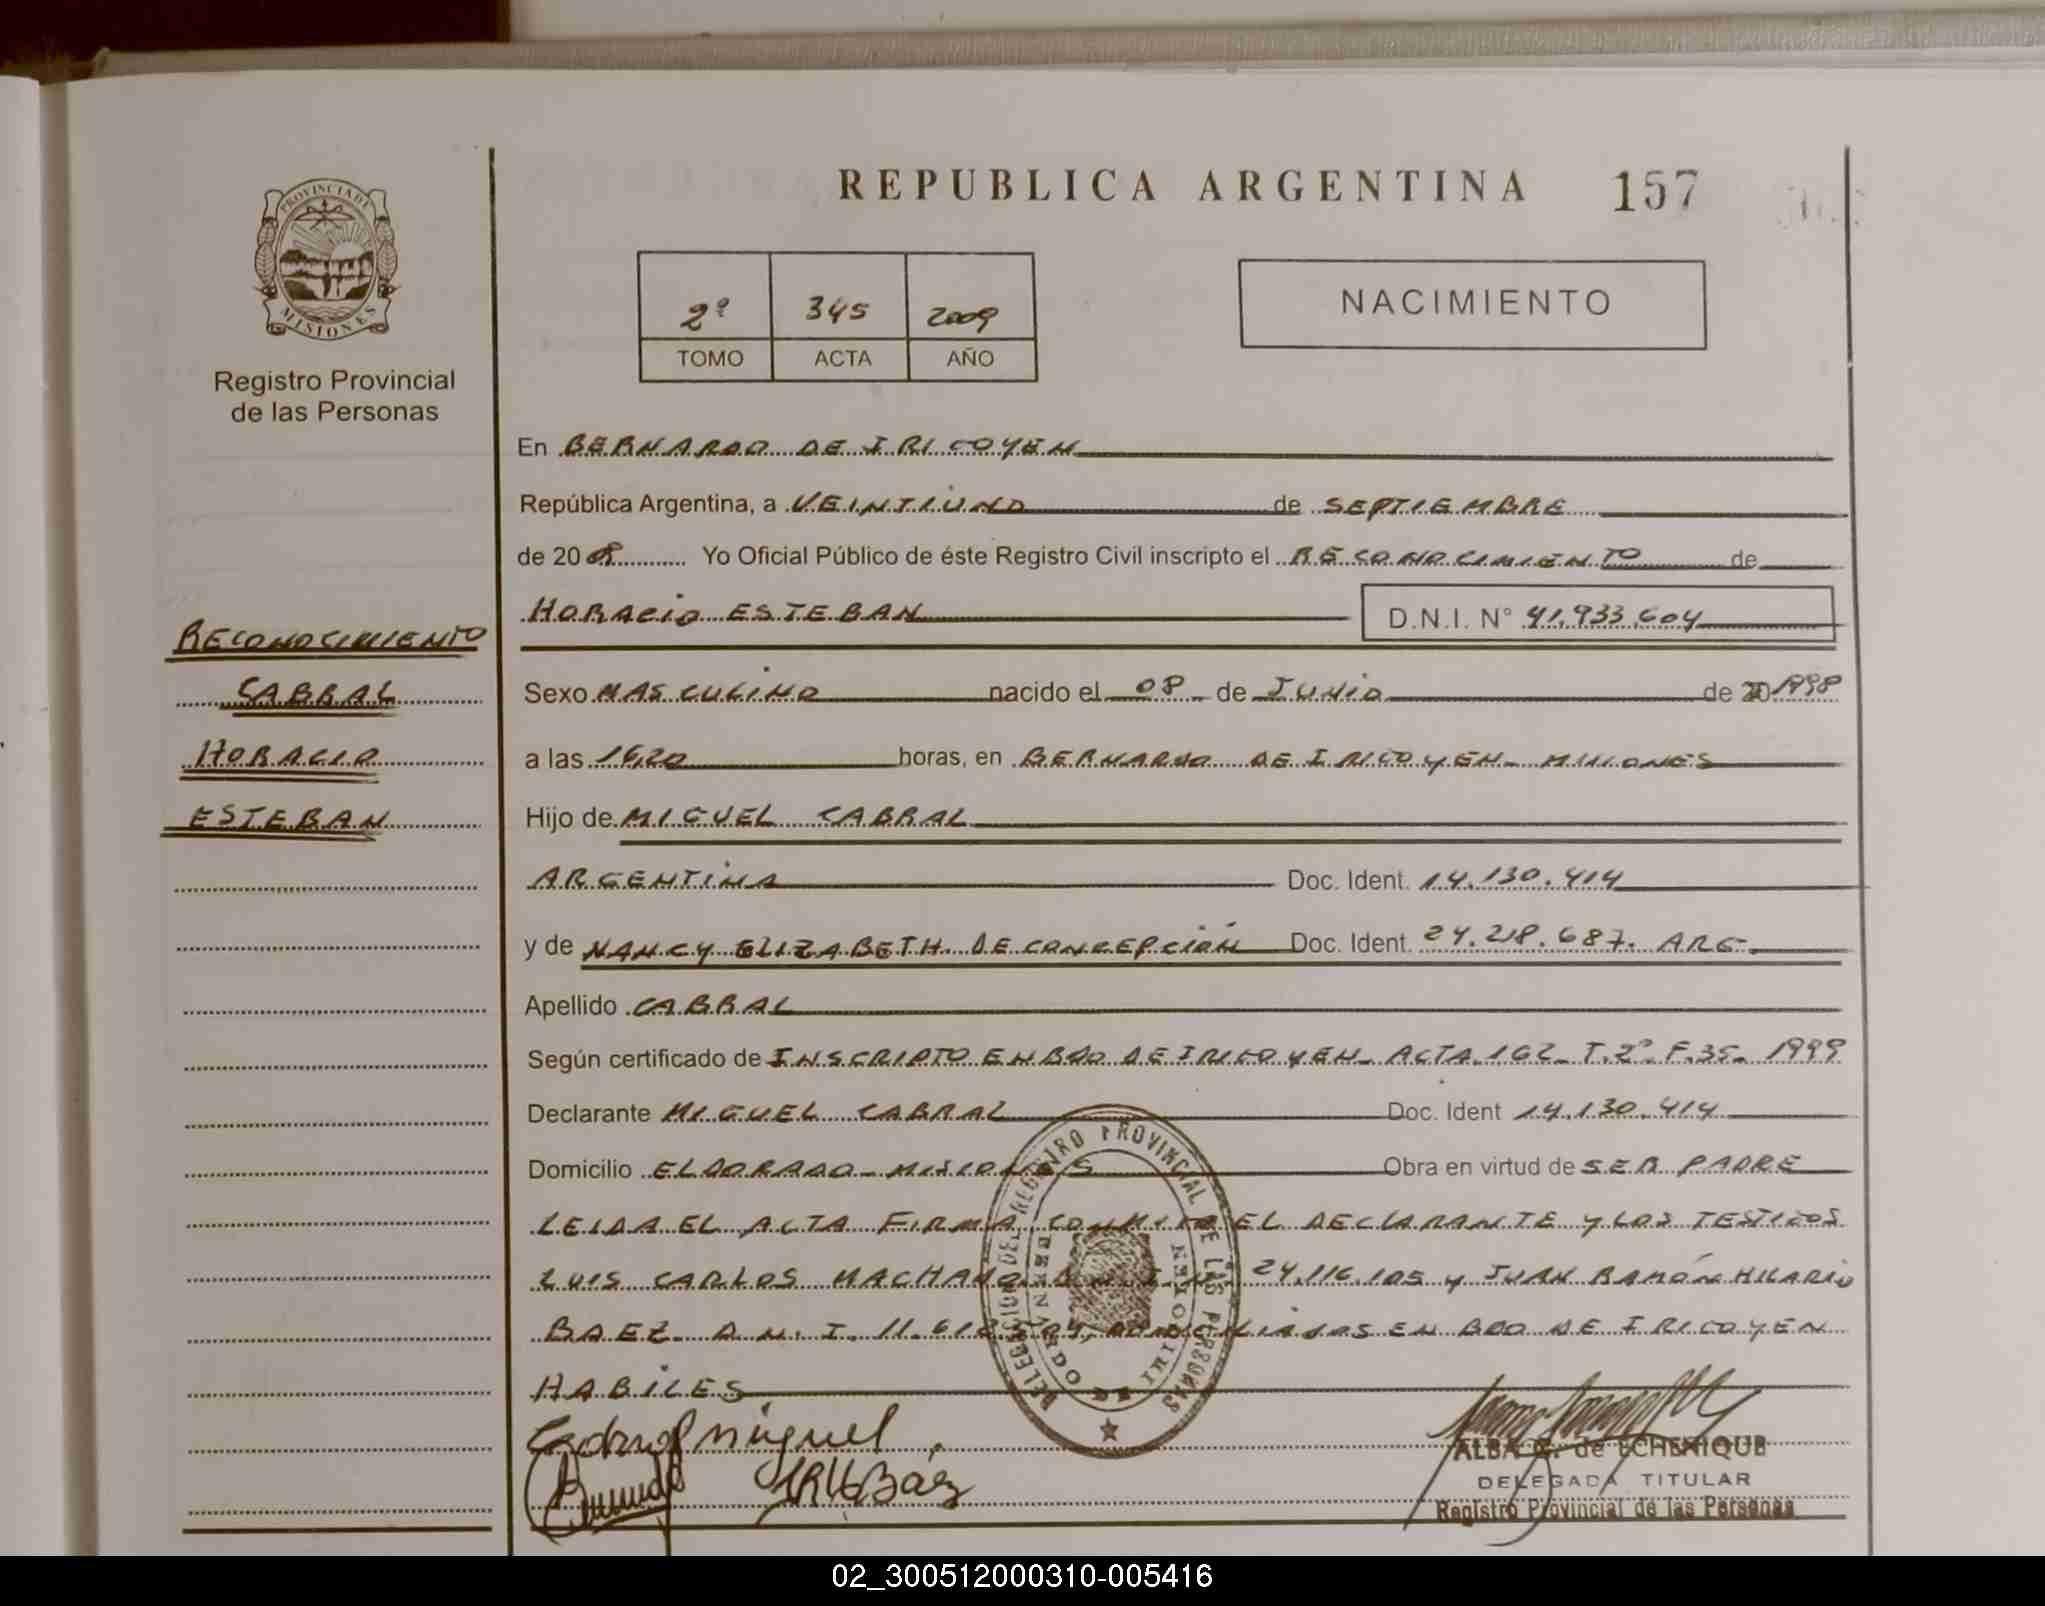 REPUBLICA ARGENTINA 157
PROVINCIA DE
MISIONES
Registro Provincial
de las Personas
2º 345 2009
TOMO ACTA AÑO
NACIMIENTO
En BERNARDO DE IRIGOYEN
República Argentina, a VEINTIUNO de SEPTIEMBRE
de 20 09 Yo Oficial Público de éste Registro Civil inscripto el RECONOCIMIENTO de
HORACIO ESTEBAN D.N.I. N° 41.933.604
RECONOCIMIENTO
CABRAL
HORACIO
ESTEBAN
Sexo MASCULINO nacido el 08 de JUNIO de 20 1998
a las 16,20 horas, en BERNARDO DE IRIGOYEN - MISIONES
Hijo de MIGUEL CABRAL
ARGENTINA Doc. Ident. 14.130.414
y de NANCY ELIZABETH DE CONCEPCIÓN Doc. Ident. 24.218.687. ARG.
Apellido CABRAL
Según certificado de INSCRIPTO EN BDO DE IRIGOYEN - ACTA 162 - T.2º F.35 - 1999
Declarante MIGUEL CABRAL Doc. Ident 14.130.414
Domicilio ELDORADO - MISIONES Obra en virtud de SER PADRE
LEIDA EL ACTA FIRMA CONMIGO EL DECLARANTE Y LOS TESTIGOS
LUIS CARLOS MACHADO D.N.I. 24.116.105 Y JUAN RAMÓN HILARIO
BAEZ D.N.I. 11.612 DOMICILIADOS EN BDO DE IRIGOYEN
HABILES
DELEGACION DEL REGISTRO PROVINCIAL DE LAS PERSONAS
BERNARDO DE IRIGOYEN
Cabral Miguel
Báez
ALBA de ECHENIQUE
DELEGADA TITULAR
Registro Provincial de las Personas
02_300512000310-005416